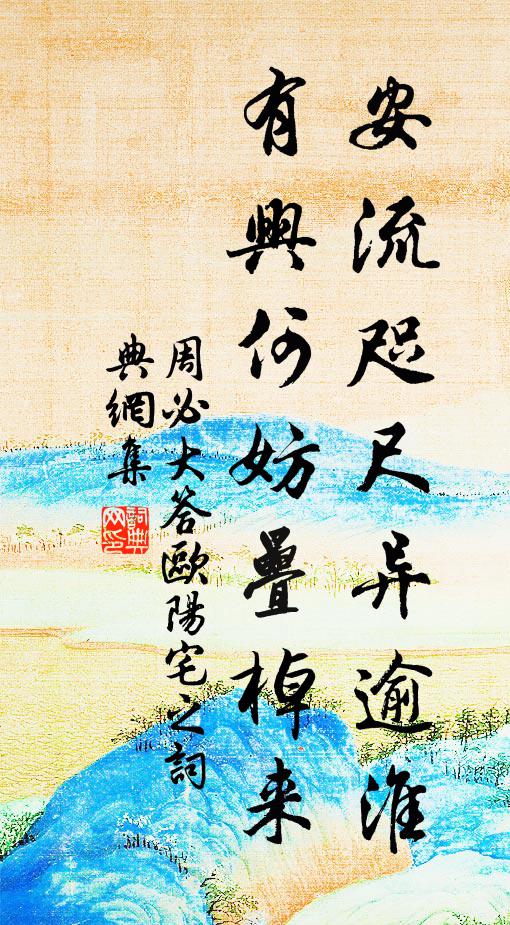 安流咫尺异逾淮
有興何妨疊棹来
周必大答歐陽宅之詞
典網集
詞典网印